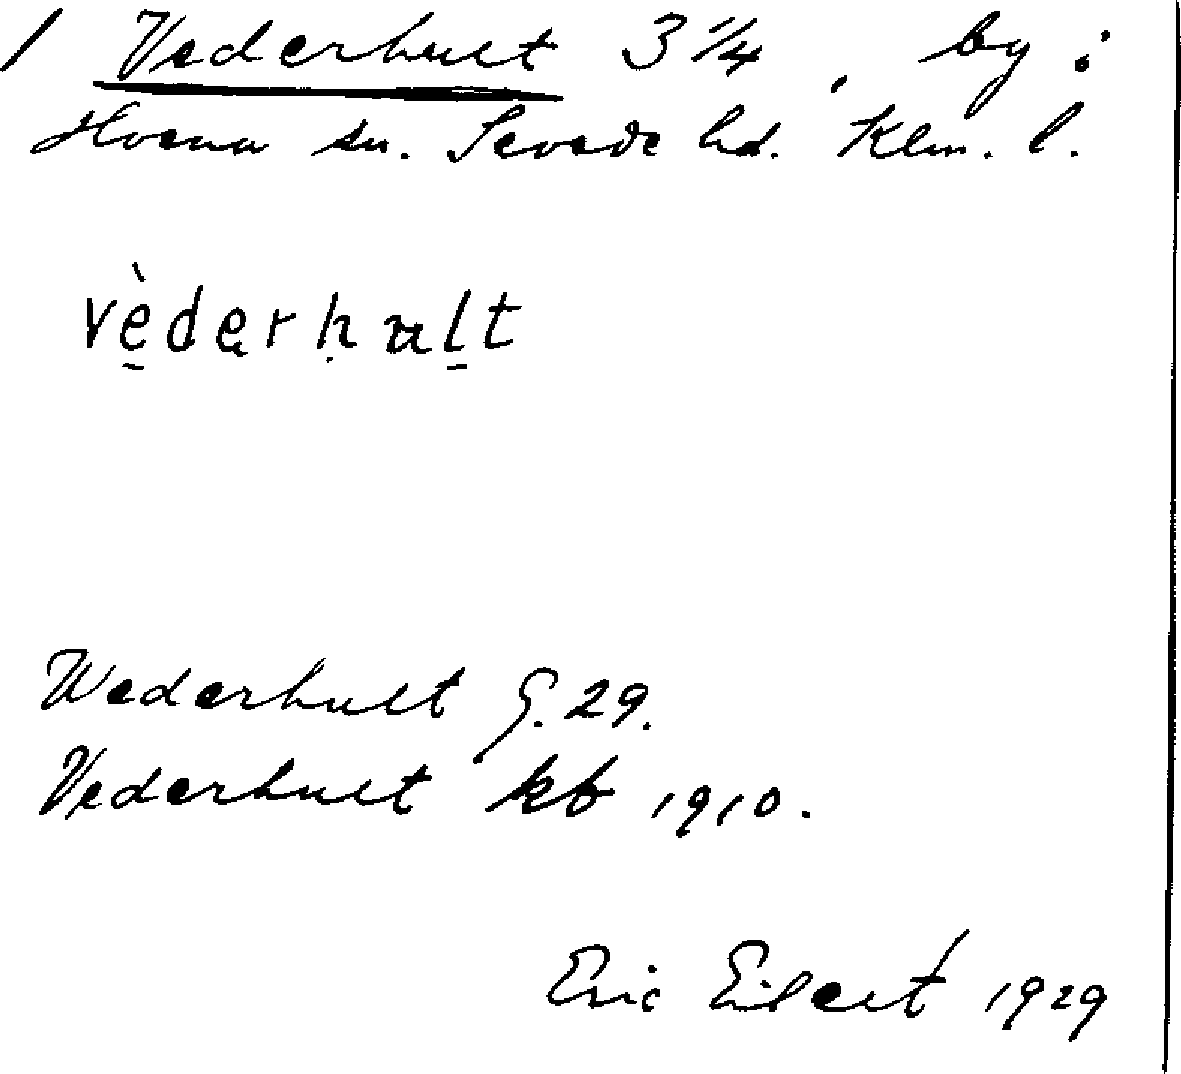 1 Vederhult 3 1/4, by i
Hvena sn. Sevede hd. Klm. l.
vèderhult
Wederhult G. 29.
Vederhult kb 1910.
Eric Eilert 1929